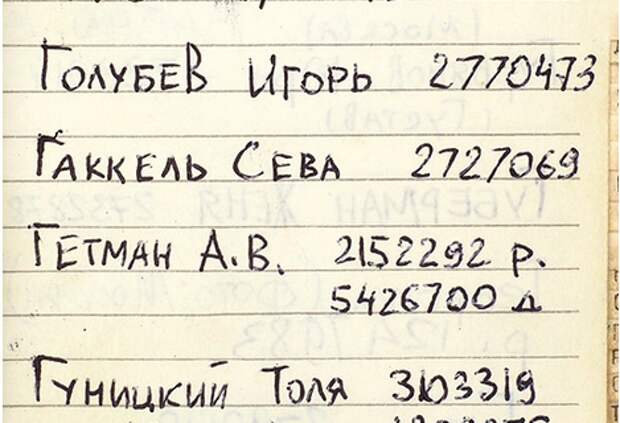 Голубев Игорь 2770473
Гаккель Сева 2727069
Гетман А.В. 2152292 р.
5426700 д
Гуницкий Толя 3103319